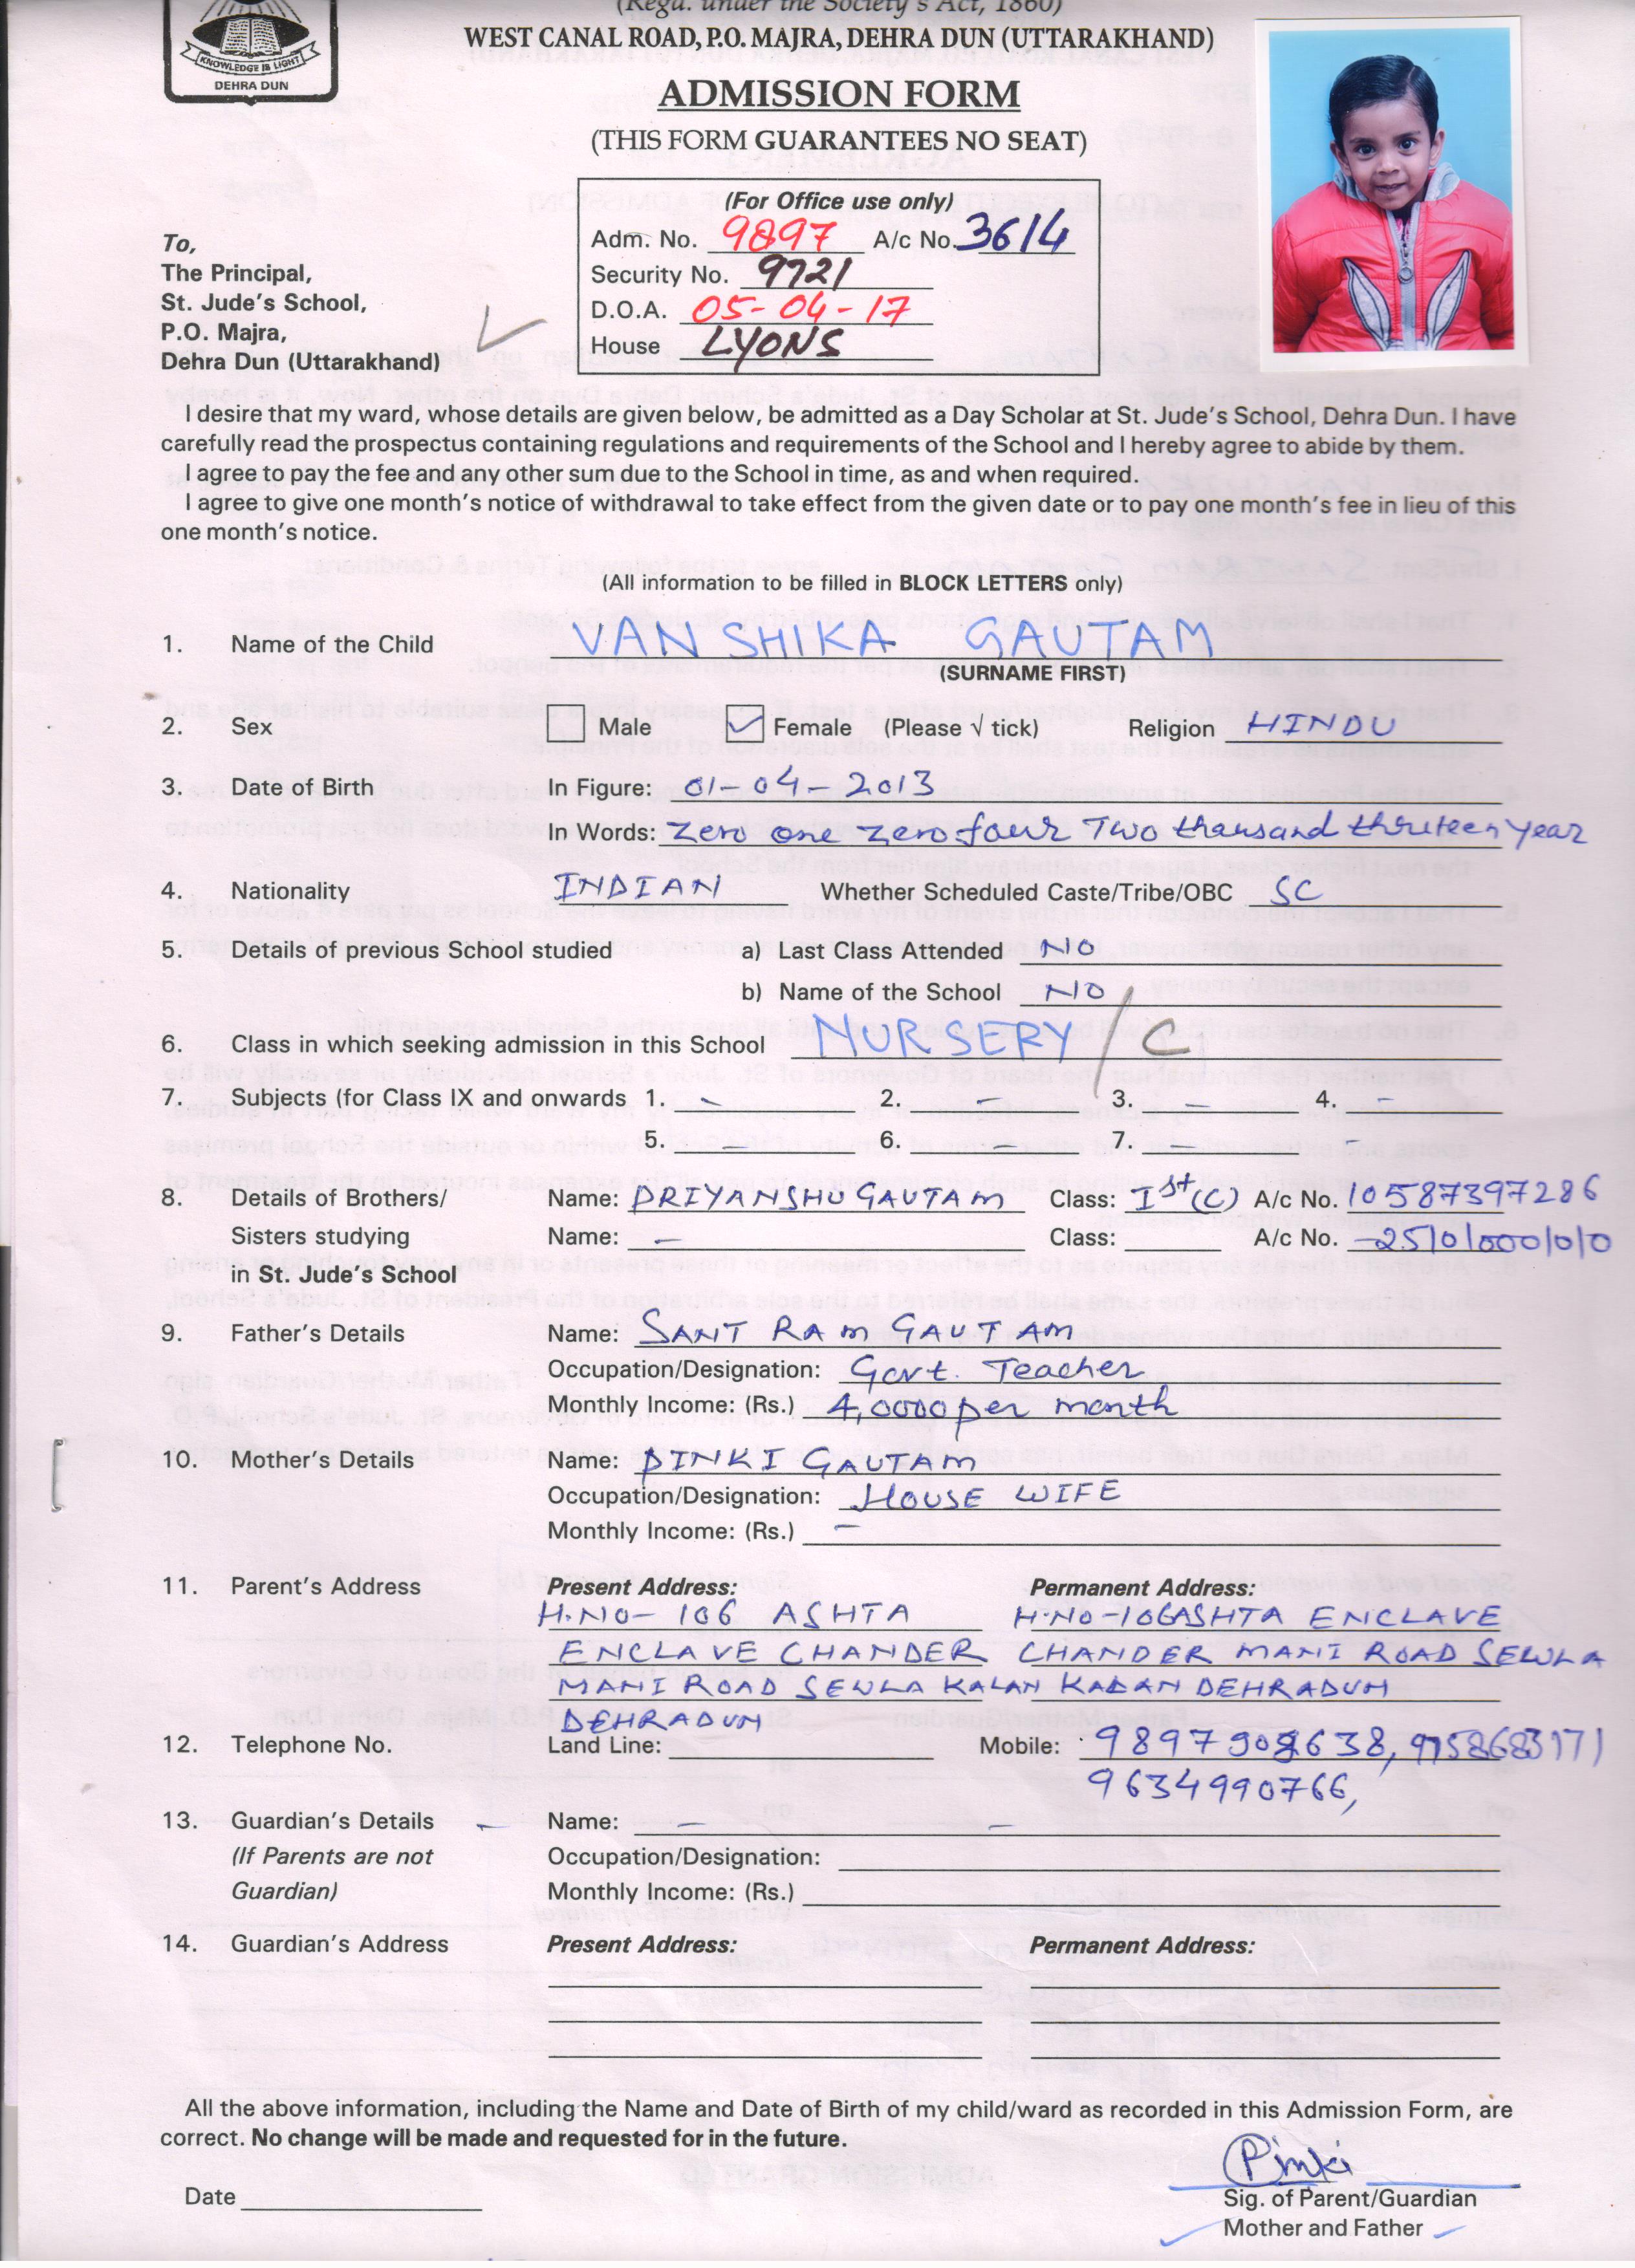 (Regd. under the Society's Act, 1860)
WEST CANAL ROAD, P.O. MAJRA, DEHRA DUN (UTTARAKHAND)
KNOWLEDGE IS LIGHT
DEHRA DUN
ADMISSION FORM
(THIS FORM GUARANTEES NO SEAT)
(For Office use only)
Adm. No. 9897 A/c No. 3614
Security No. 9721
D.O.A. 05-04-17
House LYONS
To,
The Principal,
St. Jude's School,
P.O. Majra,
Dehra Dun (Uttarakhand)
I desire that my ward, whose details are given below, be admitted as a Day Scholar at St. Jude's School, Dehra Dun. I have
carefully read the prospectus containing regulations and requirements of the School and I hereby agree to abide by them.
I agree to pay the fee and any other sum due to the School in time, as and when required.
I agree to give one month's notice of withdrawal to take effect from the given date or to pay one month's fee in lieu of this
one month's notice.
(All information to be filled in BLOCK LETTERS only)
1. Name of the Child VANSHIKA GAUTAM
(SURNAME FIRST)
2. Sex Male ✓ Female (Please √ tick) Religion HINDU
3. Date of Birth In Figure: 01-04-2013
In Words: Zero one zero four Two thousand thruteen year
4. Nationality INDIAN Whether Scheduled Caste/Tribe/OBC SC
5. Details of previous School studied a) Last Class Attended NO
b) Name of the School NO
6. Class in which seeking admission in this School NURSERY / C
7. Subjects (for Class IX and onwards 1. - 2. - 3. - 4. -
5. - 6. - 7. -
8. Details of Brothers/ Name: PRIYANSHU GAUTAM Class: Ist (C) A/c No. 10587397286
Sisters studying Name: - Class: A/c No.
in St. Jude's School
9. Father's Details Name: SANT RAM GAUTAM
Occupation/Designation: Govt. Teacher
Monthly Income: (Rs.) 4,0000 per month
10. Mother's Details Name: PINKI GAUTAM
Occupation/Designation: HOUSE WIFE
Monthly Income: (Rs.) -
11. Parent's Address Present Address: Permanent Address:
H.NO- 106 ASHTA H.NO-106ASHTA ENCLAVE
ENCLAVE CHANDER CHANDER MANI ROAD SEWLA
MANI ROAD SEWLA KALAN KALAN DEHRADUN
DEHRADUN
12. Telephone No. Land Line: Mobile:
9634990766,
13. Guardian's Details - Name: - -
(If Parents are not Occupation/Designation:
Guardian) Monthly Income: (Rs.)
14. Guardian's Address Present Address: Permanent Address:
All the above information, including the Name and Date of Birth of my child/ward as recorded in this Admission Form, are
correct. No change will be made and requested for in the future.
Pinki
Date Sig. of Parent/Guardian
Mother and Father